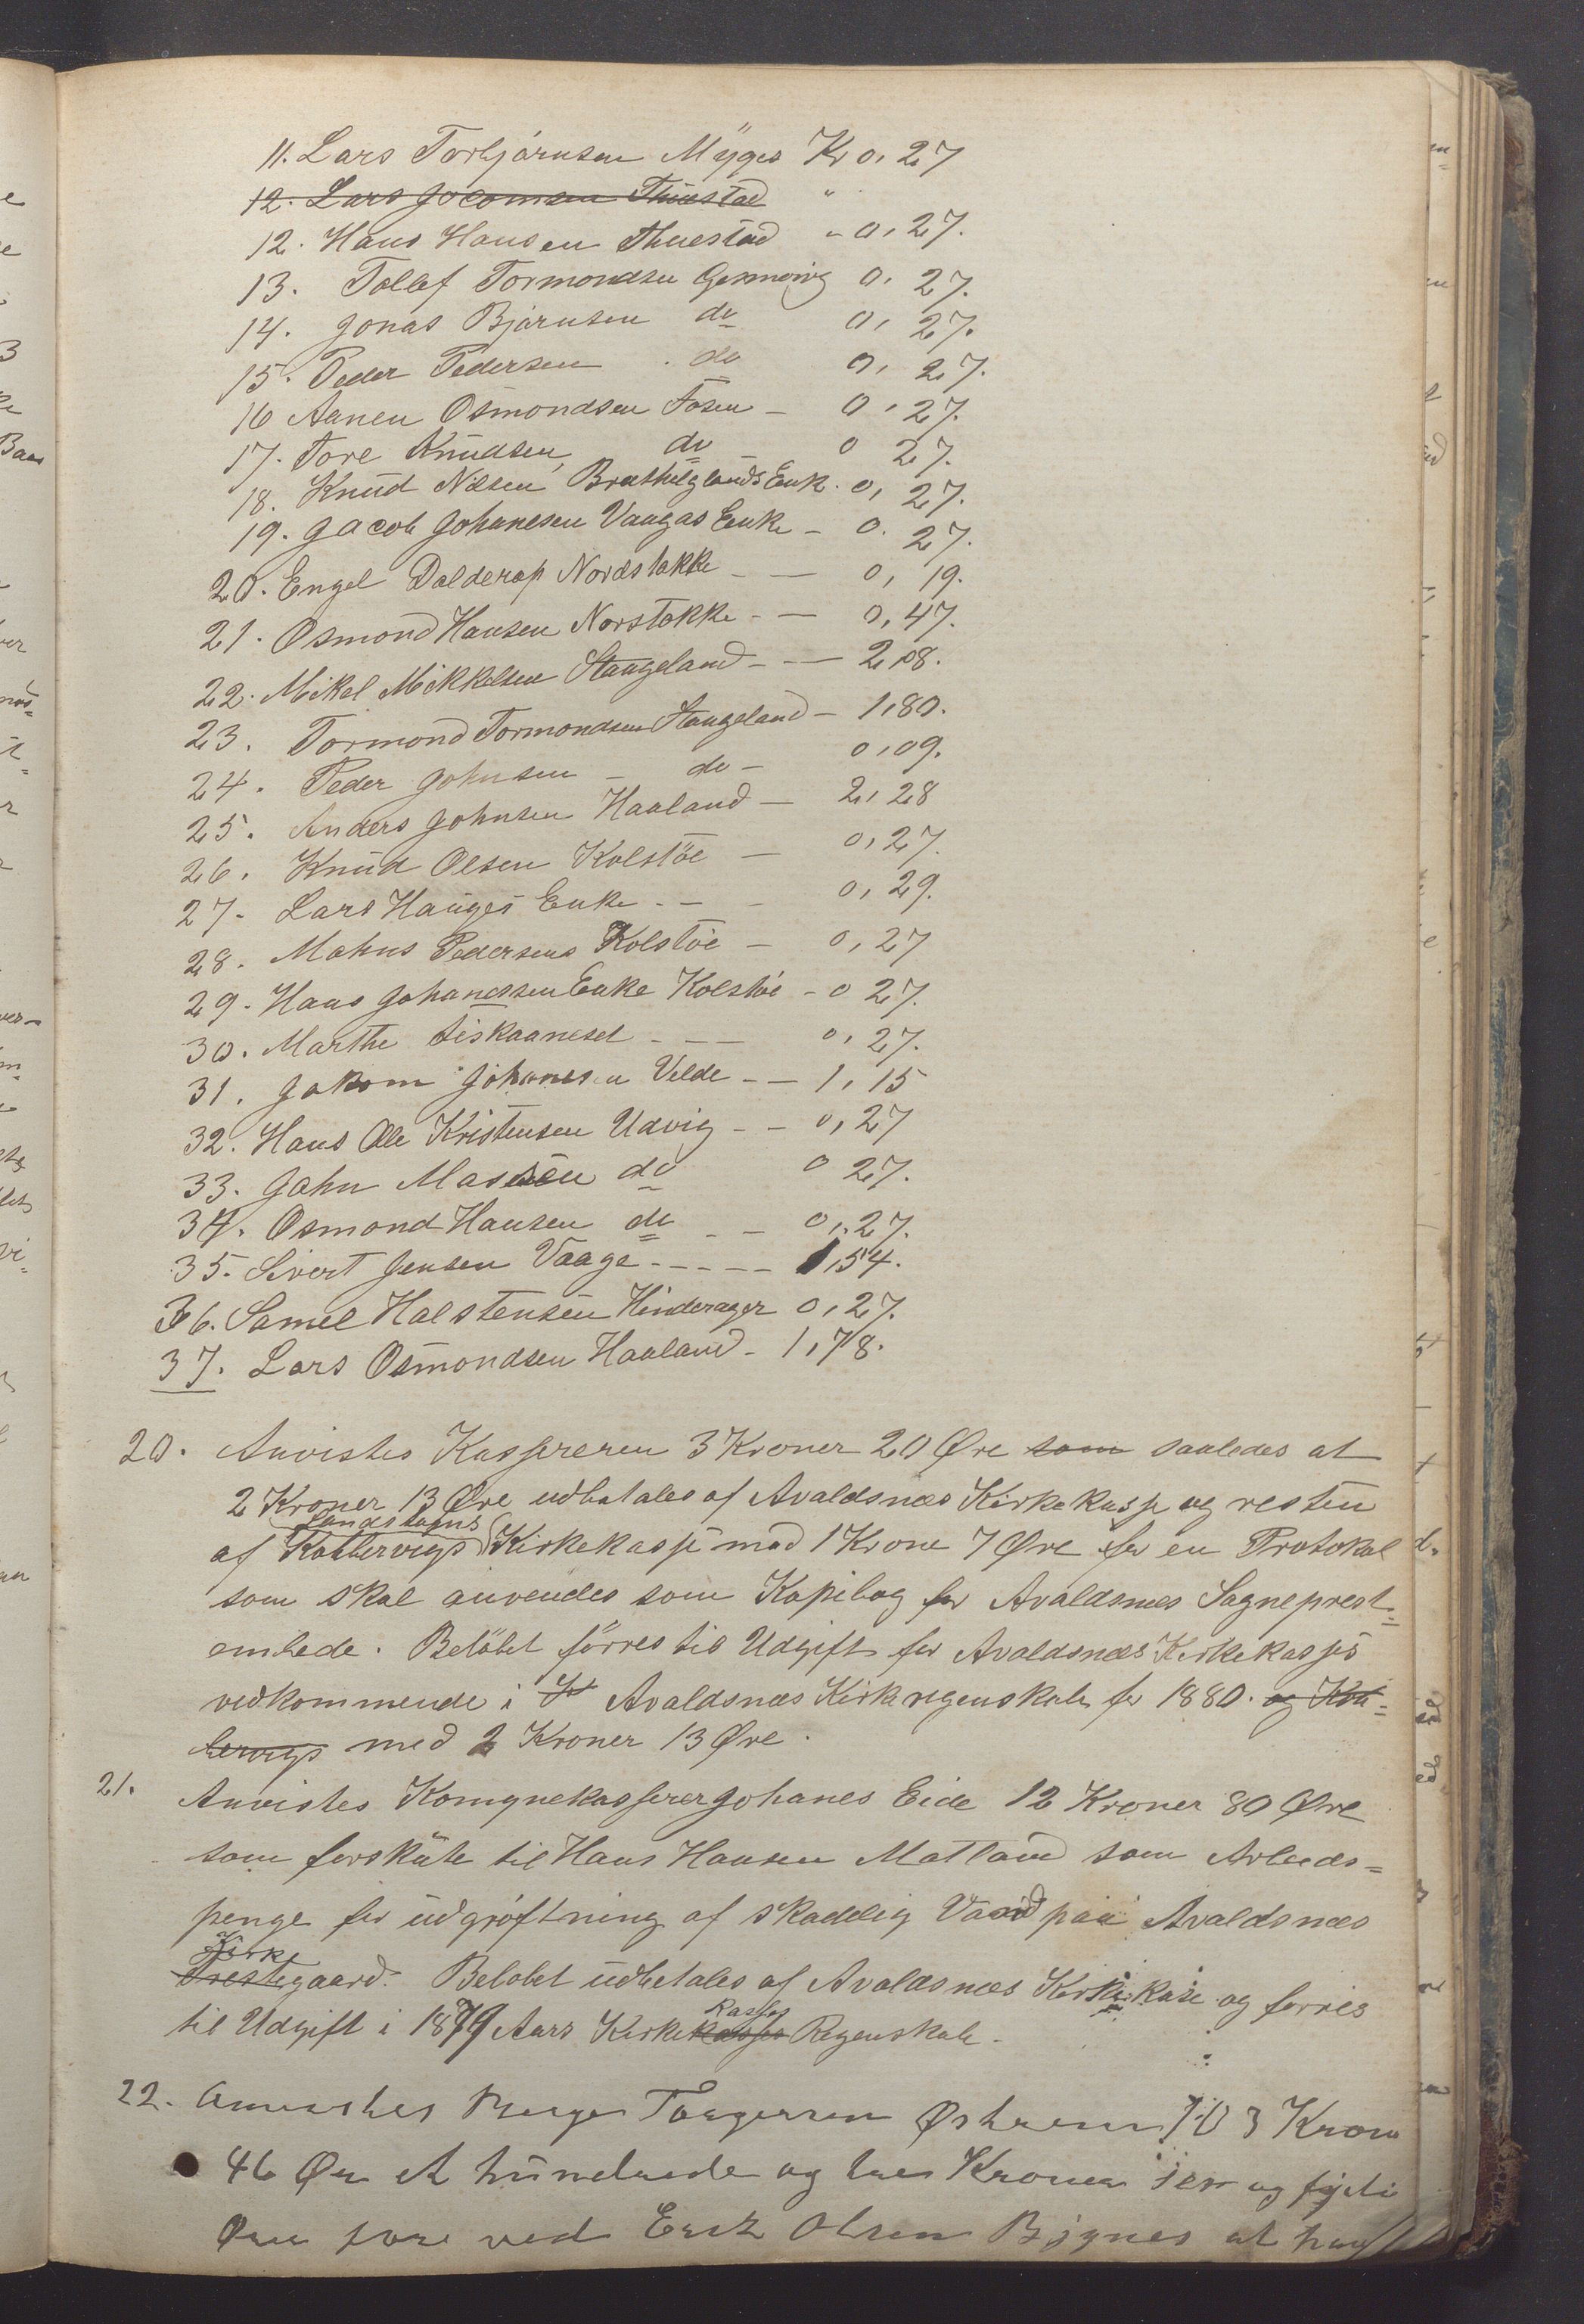 11. Lars Torbjørnsen Myges Kr 0,27
12. Lars Jocomsen Thuestad "
12. Hans Hansen Thuestad - 0,27.
13. Tollef Tormondsen Gismervig 0,27.
14. Jonas Bjørnsen do 0,27.
15. Peder Pedersen do 0,27.
16 Aanen Osmondsen Fosen - 0,27.
17. Tore Knudsen do 0 27.
18. Knud Nilsen Brathelglands Enk. 0,27.
19. Jacob Johanesen Vaagas Enke - 0.27.
20. Engel Dalderop Nordstokke - - 0,19.
21. Osmond Hansen Norstokke - - 0,47.
22. Mikal Mikkelsen Stangeland - - 2,08.
23. Tormond Tormondsen Stangeland - 1,80.
24. Peder Johnsen - do - 0,09.
25. Anders Johnsen Haaland - 2,28
26. Knud Olsen Kolstöe - 0,27.
27. Lars Hauges Enke - - 0,29.
28. Mahns Pedersens Kolstöe - 0,27
29. Hans Johanessen Enke Kolstöe - 0 27.
30. Marthe Fiskaaneset - - - 0,27.
31. Jakom Johanesen Velde - - 1,15
32. Hans Ole Kristensen Udvig - - 0,27
33. John Massen do 0 27.
34. Osmond Hansen do - - 0,27.
35. Sivert Jensen Vaage - - - - - 1,54.
36. Samel Halstensen Hinderager 0,27.
37. Lars Osmondsen Haaland - 1,78.
20. Anvistes Kassereren 3 Kroner 20 Øre som saaledes at
2 Kroner 13 Øre udbetales af Avaldsnæs Kirkekasse og resten
Landskogns
af Kobbervigs Kirkekasse med 1 Krone 7 Øre for en Protokol
som skal anvendes som Kopibog for Avaldsnæs Sogneprest=
embede. Beløbet førres til Udgift for Avaldsnæs Kirkekasses
vedkommende i K Avaldsnæs Kirkeregenskab for 1880. og Kob=
bervigs med 2 Kroner 13 Øre.
21. Anvistes Komunekasserer Johanes Eide 12 Kroner 80 Øre
som forskute til Hans Hansen Matland som Arbeds=
penge for udgrøftning af skadelig Vand paa Avaldsnæs
Kirke
Prestegaard. Belobet udbetales af Avaldsnæs Kirkekase og forres
Kasses
til Udgift i 1879 Aars Kirkekasses Regenskab.
22. Anvistes Børge Torgersen Østrem 103 Kroner
46 Øre et hundrede og tre Kroner sex og fyrti
Øre for ved Erik Olsen Bygnes at have